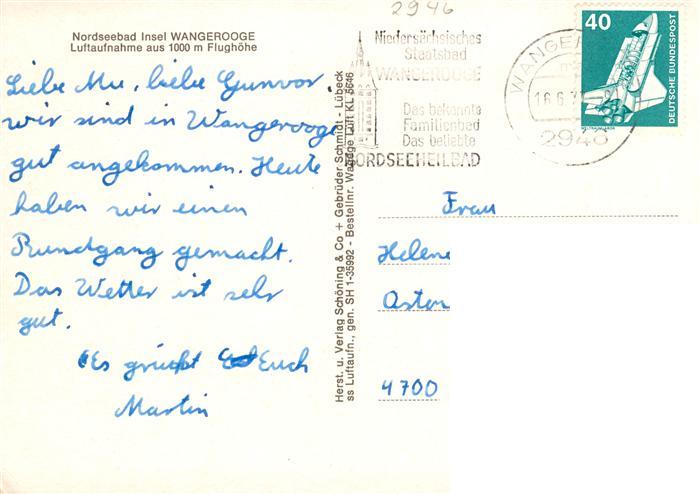 2946
Nordseebad Insel WANGEROOGE
Luftaufnahme aus 1000 m Flughöhe
Liebe Mu, liebe Gunvor,
wir sind in Wangerooge
gut angekommen. Heute
haben wir einen
Rundgang gemacht.
Das Wetter ist sehr
gut.
Es grüßt Euch
Martin
Herst. u. Verlag Schöning & Co + Gebrüder Schmidt - Lübeck
ss Luftaufn., gen. SH 1-35992 - Bestellnr. Wange Luft KL 5646
Niedersächsisches
Staatsbad
WANGEROOGE
Das bekannte
Familienbad
Das beliebte
NORDSEEHEILBAD
WANGER
16.6.7
2946
40
DEUTSCHE BUNDESPOST
Frau
Helene
Aston
4700